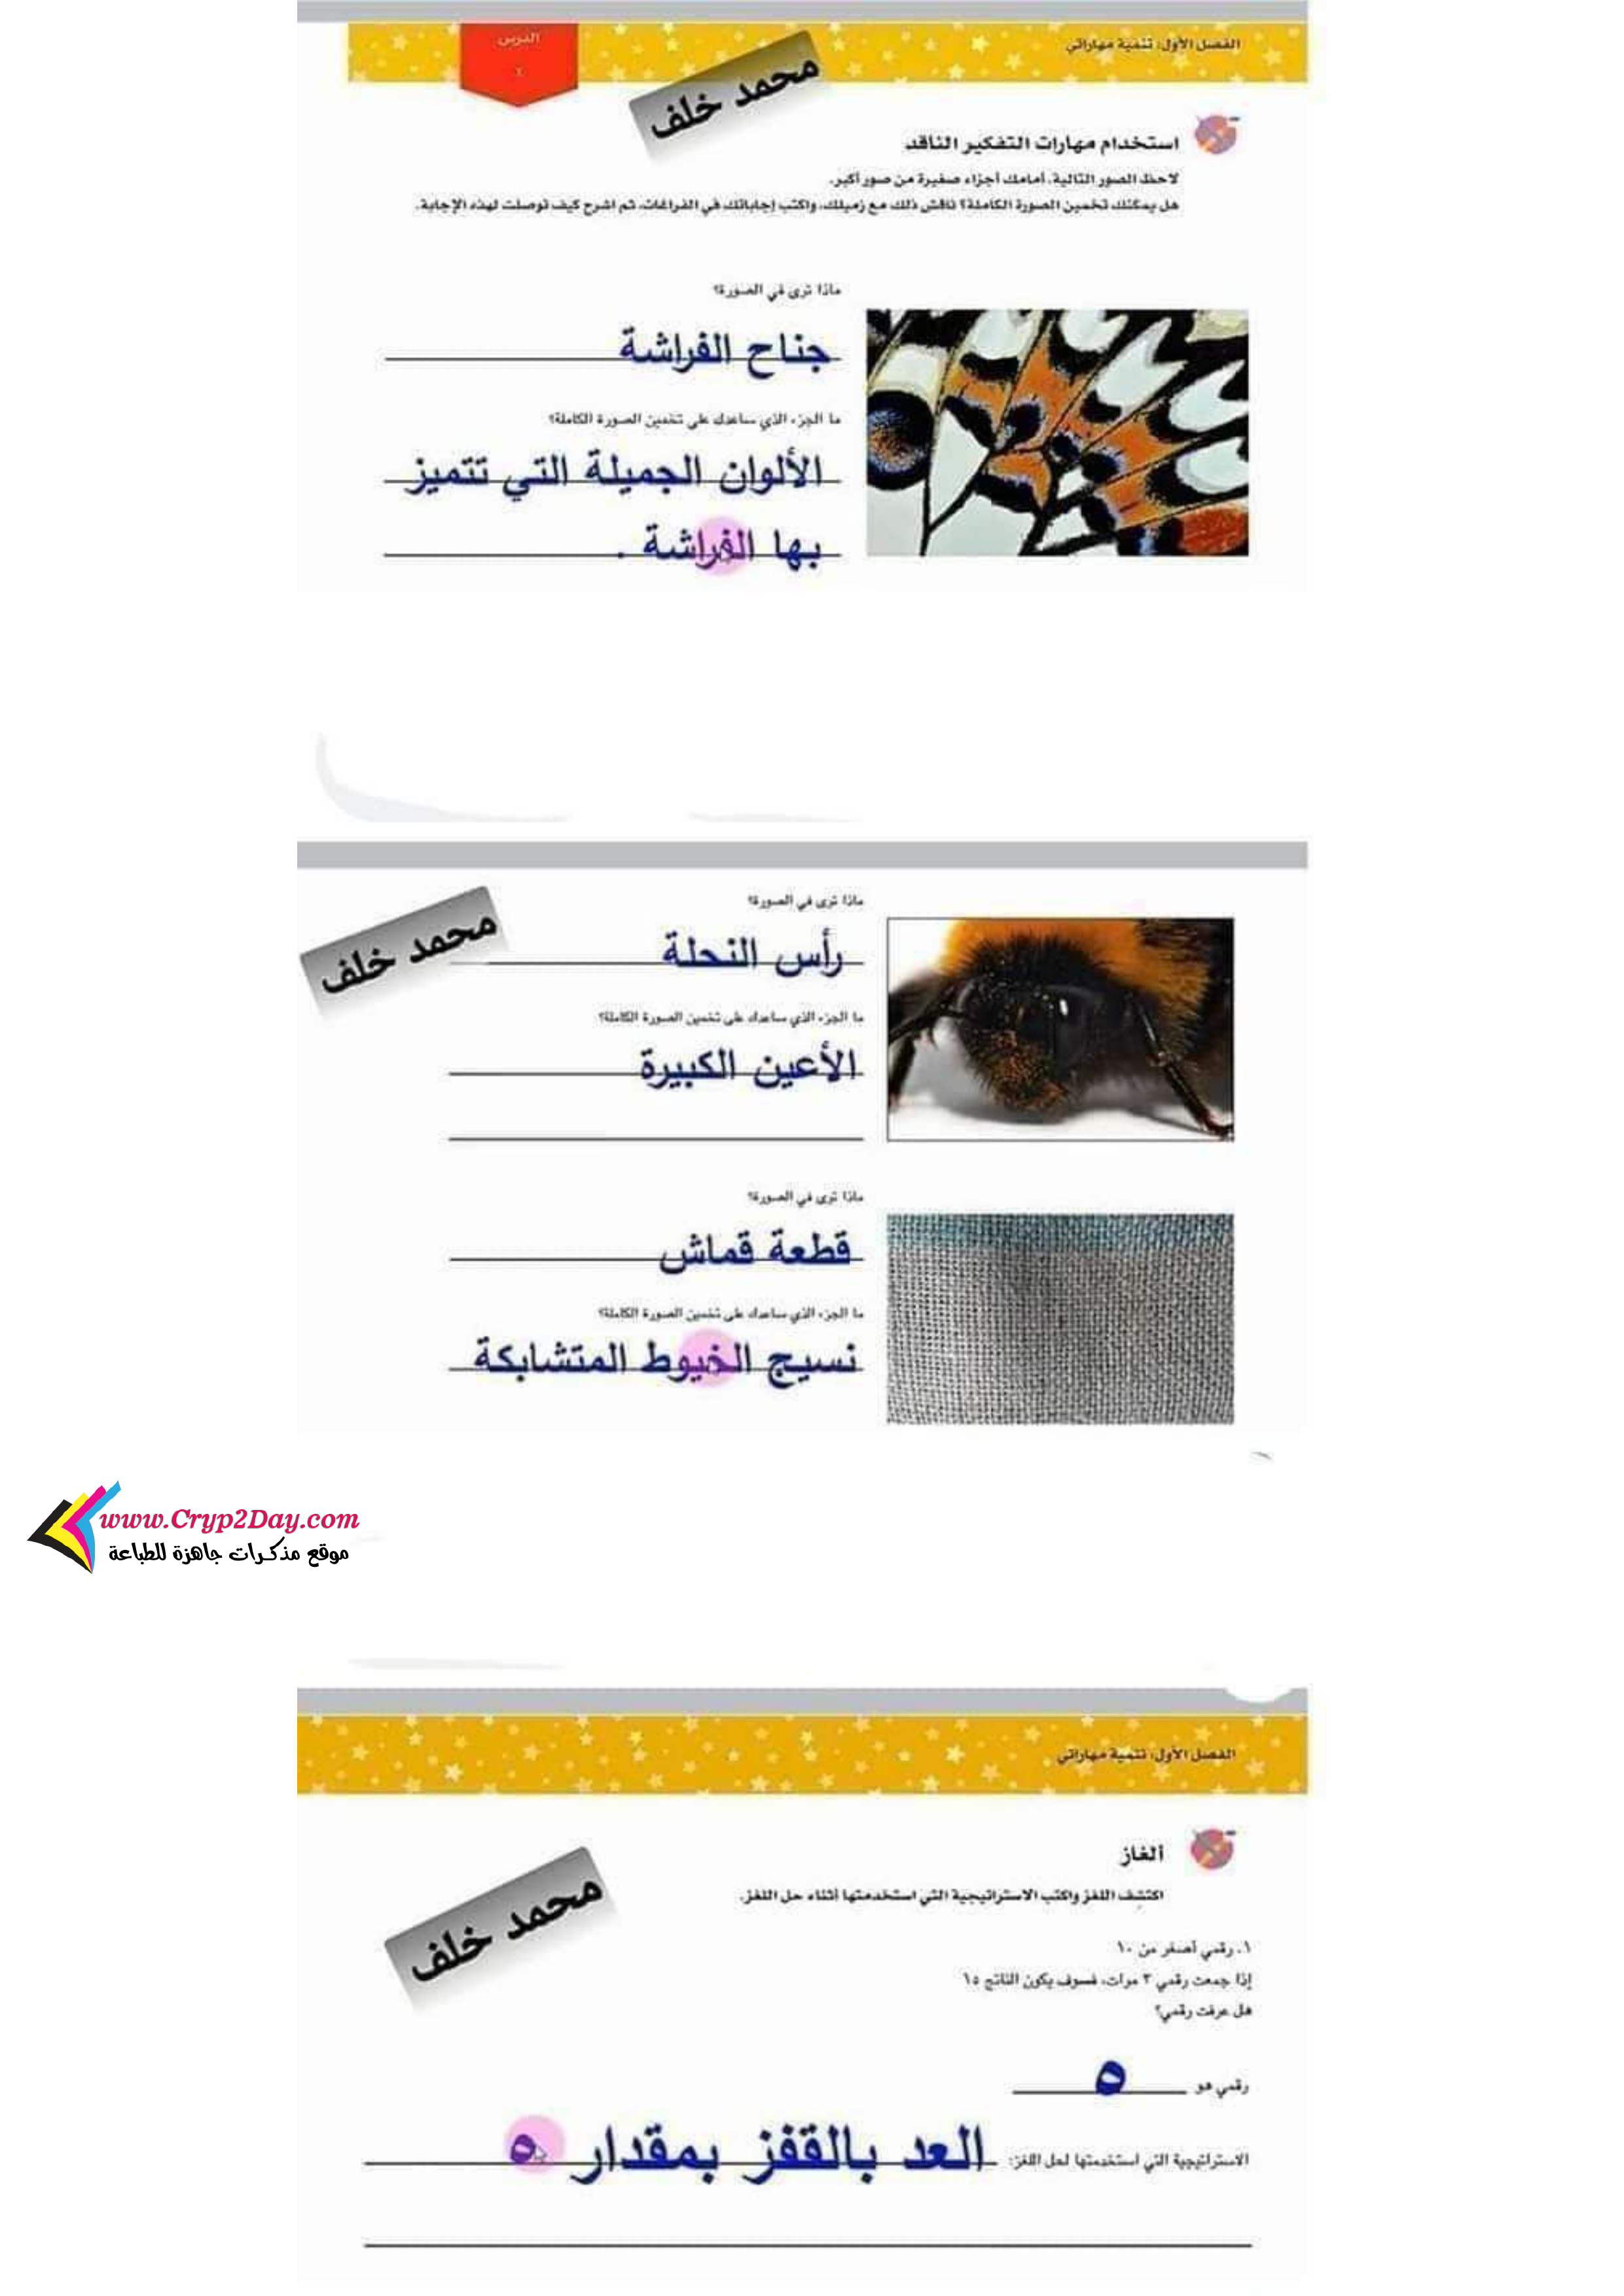 الفصل الأول: تنمية مهاراتي
الدرس
٢
محمد خلف
استخدام مهارات التفكير الناقد
لاحظ الصور التالية. أمامك أجزاء صغيرة من صور أكبر.
هل يمكنك تخمين الصورة الكاملة؟ ناقش ذلك مع زميلك، واكتب إجاباتك في الفراغات، ثم اشرح كيف توصلت لهذه الإجابة.
ماذا ترى في الصورة؟
جناح الفراشة
ما الجزء الذي ساعدك على تخمين الصورة الكاملة؟
الألوان الجميلة التي تتميز
بها الفراشة .
محمد خلف
ماذا ترى في الصورة؟
رأس النحلة
ما الجزء الذي ساعدك على تخمين الصورة الكاملة؟
الأعين الكبيرة
ماذا ترى في الصورة؟
قطعة قماش
ما الجزء الذي ساعدك على تخمين الصورة الكاملة؟
نسيج الخيوط المتشابكة
www.Cryp2Day.com
موقع مذكرات جاهزة للطباعة
الفصل الأول: تنمية مهاراتي
محمد خلف
ألغاز
اكتشف اللغز واكتب الاستراتيجية التي استخدمتها أثناء حل اللغز.
١. رقمي أصغر من ١٠
إذا جمعت رقمي ٣ مرات، فسوف يكون الناتج ١٥
هل عرفت رقمي؟
رقمي هو ٥
الاستراتيجية التي استخدمتها لحل اللغز: العد بالقفز بمقدار ٥